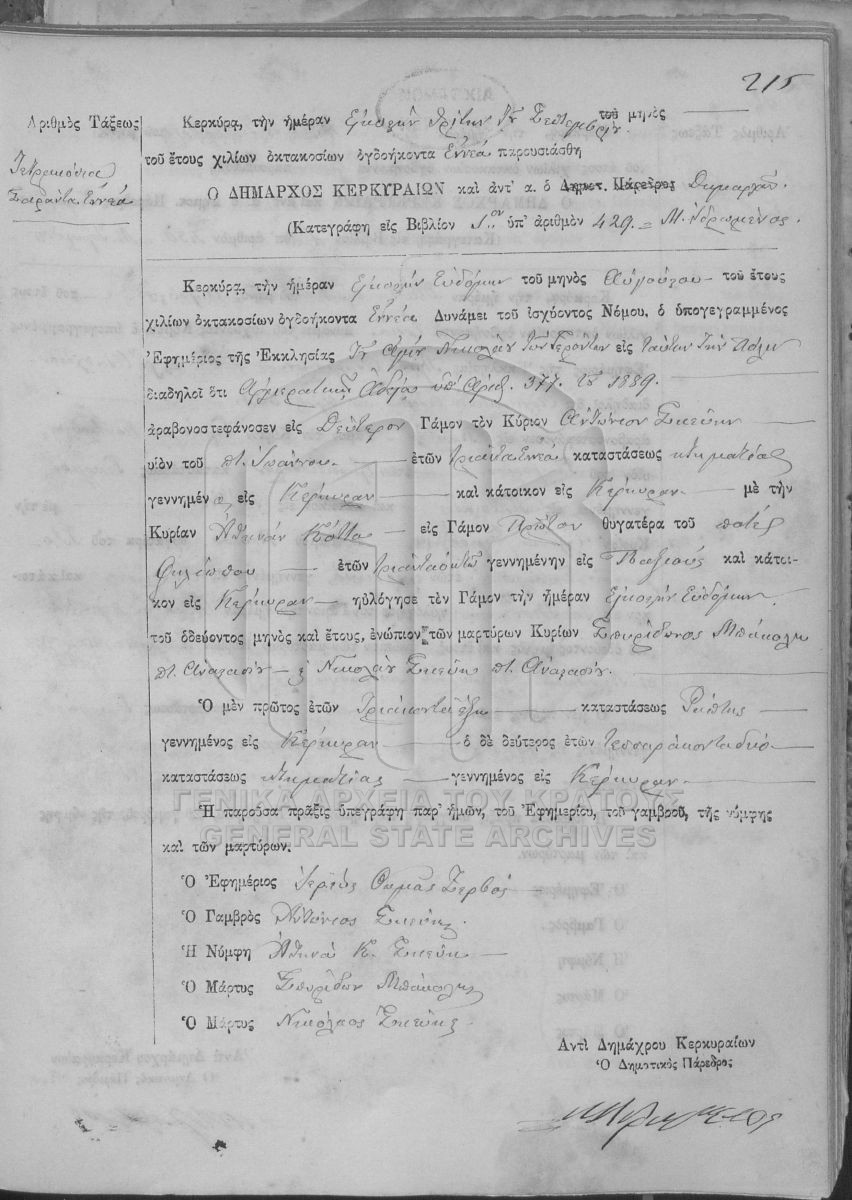 215
Ἀριθμὸς Τάξεως
Τετρακόσια
Σαράντα Ἐννέα
Κερκύρᾳ, τὴν ἡμέραν Εἰκοστὴν Τρίτην τοῦ Σεπτεμβρίου τοῦ μηνὸς
τοῦ ἔτους χιλίων ὀκτακοσίων ὀγδοήκοντα Ἐννέα παρουσιάσθη
Ὁ ΔΗΜΑΡΧΟΣ ΚΕΡΚΥΡΑΙΩΝ καὶ ἀντ' α. ὁ Δημοτ. Πάρεδρος Δημαρχῶν.
(Κατεγράφη εἰς Βιβλίον ὑπ' ἀριθμὸν 429.
Κερκύρᾳ, τὴν ἡμέραν Εἰκοστὴν Ἑβδόμην τοῦ μηνὸς Αὐγούστου τοῦ ἔτους
χιλίων ὀκτακοσίων ὀγδοήκοντα Ἐννέα Δυνάμει τοῦ ἰσχύοντος Νόμου, ὁ ὑπογεγραμμένος
Ἐφημέριος τῆς Ἐκκλησίας τοῦ Ἁγίου Νικολάου τῶν Γερόντων εἰς ταύτην τὴν Πόλιν
διαδηλοῖ ὅτι Ἀρχιερατικῇ Ἀδείᾳ ὑπ' Ἀριθ. 377. τοῦ 1889.
ἀραβονοστεφάνοσεν εἰς Δεύτερον Γάμον τὸν Κύριον Ἀντώνιον Σκεύην
υἱὸν τοῦ πτ. Ἰωάννου ἐτῶν τριάντα Ἐννέα καταστάσεως κτηματίας
γεννημέν ο εἰς Κέρκυραν καὶ κάτοικον εἰς Κέρκυραν μὲ τὴν
Κυρίαν Ἀθηνᾶν Κόττα εἰς Γάμον Πρῶτον θυγατέρα τοῦ ποτὲ
Φιλίππου ἐτῶν τριάντα ὀκτὼ γεννημένην εἰς Παξοὺς καὶ κάτοι-
κον εἰς Κέρκυραν ηὐλόγησε τὸν Γάμον τὴν ἡμέραν Εἰκοστὴν Ἑβδόμην
τοῦ ὁδεύοντος μηνὸς καὶ ἔτους, ἐνώπιον τῶν μαρτύρων Κυρίων Σπυρίδωνος Μπάκολη
πτ. Ἀναστασίου & Νικολάου Σκεύη πτ. Ἀναστασίου.
Ὁ μὲν πρῶτος ἐτῶν Τριάκοντα ἓξ καταστάσεως Ράπτης
γεννημένος εἰς Κέρκυραν ὁ δὲ δεύτερος ἐτῶν τεσσαράκοντα δύο
καταστάσεως κτηματίας γεννημένος εἰς Κέρκυραν.
ΓΕΝΙΚΑ ΑΡΧΕΙΑ ΤΟΥ ΚΡΑΤΟΥΣ
Ἡ παροῦσα πρᾶξις ὑπεγράφη παρ' ἡμῶν, τοῦ Ἐφημερίου, τοῦ γαμβροῦ, τῆς νύμφης
GENERAL STATE ARCHIVES
καὶ τῶν μαρτύρων.
Ὁ Ἐφημέριος Ἱερεὺς Θωμᾶς Ζερβὸς
Ὁ Γαμβρὸς Ἀντώνιος Σκεύης.
Ἡ Νύμφη Ἀθηνᾶ Κ. Σκεύη
Ὁ Μάρτυς Σπυρίδων Μπάκολης
Ὁ Μάρτυς Νικόλαος Σκεύης
Ἀντὶ Δημάχρου Κερκυραίων
Ὁ Δημοτικὸς Πάρεδρος